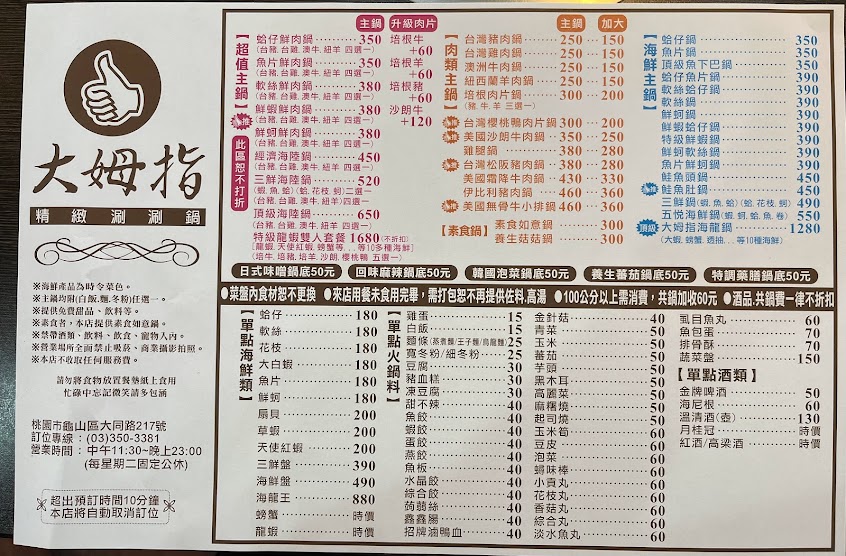 大姆指
精緻涮涮鍋
※海鮮產品為時令菜色。
※主鍋均附(白飯.麵.冬粉)任選一。
※提供免費甜品、飲料等。
※素食者,本店提供素食如意鍋。
※禁帶酒類、飲料、飲食、寵物入內。
※營業場所全面禁止吸菸、商業攝影拍照。
※本店不收取任何服務費。
請勿將食物放置餐墊紙上食用
忙碌中忘記微笑請多包涵
桃園市龜山區大同路217號
訂位專線:(03)350-3381
營業時間:中午11:30~晚上23:00
(每星期二固定公休)
超出預訂時間10分鐘
本店將自動取消訂位
主鍋 升級肉片
【超值主鍋】
此區恕不打折
蛤仔鮮肉鍋 350 培根牛 +60
(台豬.台雞.澳牛.紐羊 四選一)
魚片鮮肉鍋 350 培根羊 +60
(台豬.台雞.澳牛.紐羊 四選一)
軟絲鮮肉鍋 380 培根豬 +60
(台豬.台雞.澳牛.紐羊 四選一)
鮮蝦鮮肉鍋 380 沙朗牛 +120
(台豬.台雞.澳牛.紐羊 四選一)
鮮蚵鮮肉鍋 380
(台豬.台雞.澳牛.紐羊 四選一)
經濟海陸鍋 450
(台豬.台雞.澳牛.紐羊 四選一)
三鮮海陸鍋 520
(蝦.魚.蛤)(蛤.花枝.蚵)二選一
(台豬.台雞.澳牛.紐羊 四選一)
頂級海陸鍋 650
(台豬.台雞.澳牛.紐羊 四選一)
特級龍蝦雙人套餐 1680(不折扣)
[龍蝦.天使紅蝦.螃蟹等...等10多種海鮮]
(培牛.培豬.培羊.沙朗.櫻桃鴨 五選一)
主鍋 加大
【肉類主鍋】
台灣豬肉鍋 250 150
台灣雞肉鍋 250 150
澳洲牛肉鍋 250 150
紐西蘭羊肉鍋 250 150
培根肉片鍋 300 200
(豬.牛.羊 三選一)
台灣櫻桃鴨肉片鍋 300 200
美國沙朗牛肉鍋 350 250
雞腿鍋 380 280
台灣松阪豬肉鍋 380 280
美國霜降牛肉鍋 430 330
伊比利豬肉鍋 460 360
美國無骨牛小排鍋 460 360
【素食鍋】
素食如意鍋 300
養生菇菇鍋 300
【海鮮主鍋】
蛤仔鍋 350
魚片鍋 350
頂級魚下巴鍋 350
蛤仔魚片鍋 390
軟絲蛤仔鍋 390
軟絲鍋 390
鮮蚵鍋 390
鮮蝦蛤仔鍋 390
特級鮮蝦鍋 390
鮮蚵軟絲鍋 390
魚片鮮蚵鍋 390
鮭魚頭鍋 450
鮭魚肚鍋 450
三鮮鍋(蝦.魚.蛤)(蛤.花枝.蚵) 490
五悅海鮮鍋(蝦.蚵.蛤.魚.卷) 550
頂級 大姆指海龍鍋 1280
(大蝦.螃蟹.透抽...等10種海鮮)
日式味噌鍋底50元 回味麻辣鍋底50元 韓國泡菜鍋底50元 養生蕃茄鍋底50元 特調藥膳鍋底50元
●菜盤內食材恕不更換 ●來店用餐未食用完畢,需打包恕不再提供佐料.高湯 ●100公分以上需消費,共鍋加收60元 ●酒品.共鍋費一律不折扣
【單點海鮮類】
蛤仔 180
軟絲 180
花枝 180
大白蝦 180
魚片 180
鮮蚵 180
扇貝 200
草蝦 200
天使紅蝦 200
三鮮盤 390
海鮮盤 490
海龍王 880
螃蟹 時價
龍蝦 時價
【單點火鍋料】
雞蛋 15
白飯 15
麵條(蒸煮麵/王子麵/烏龍麵) 25
寬冬粉/細冬粉 25
豆腐 30
豬血糕 30
凍豆腐 30
甜不辣 40
魚餃 40
蝦餃 40
蛋餃 40
燕餃 40
魚板 40
水晶餃 40
綜合餃 40
蒟蒻絲 40
鑫鑫腸 40
招牌滷鴨血 40
金針菇 40
青菜 50
玉米 50
蕃茄 50
芋頭 50
黑木耳 50
高麗菜 50
麻糬燒 50
起司燒 50
玉米筍 60
豆皮 60
泡菜 60
蟳味棒 60
小貢丸 60
花枝丸 60
香菇丸 60
綜合丸 60
淡水魚丸 60
虱目魚丸 60
魚包蛋 70
排骨酥 70
蔬菜盤 150
【單點酒類】
金牌啤酒 50
海尼根 60
溫清酒(壺) 130
月桂冠 時價
紅酒/高梁酒 時價